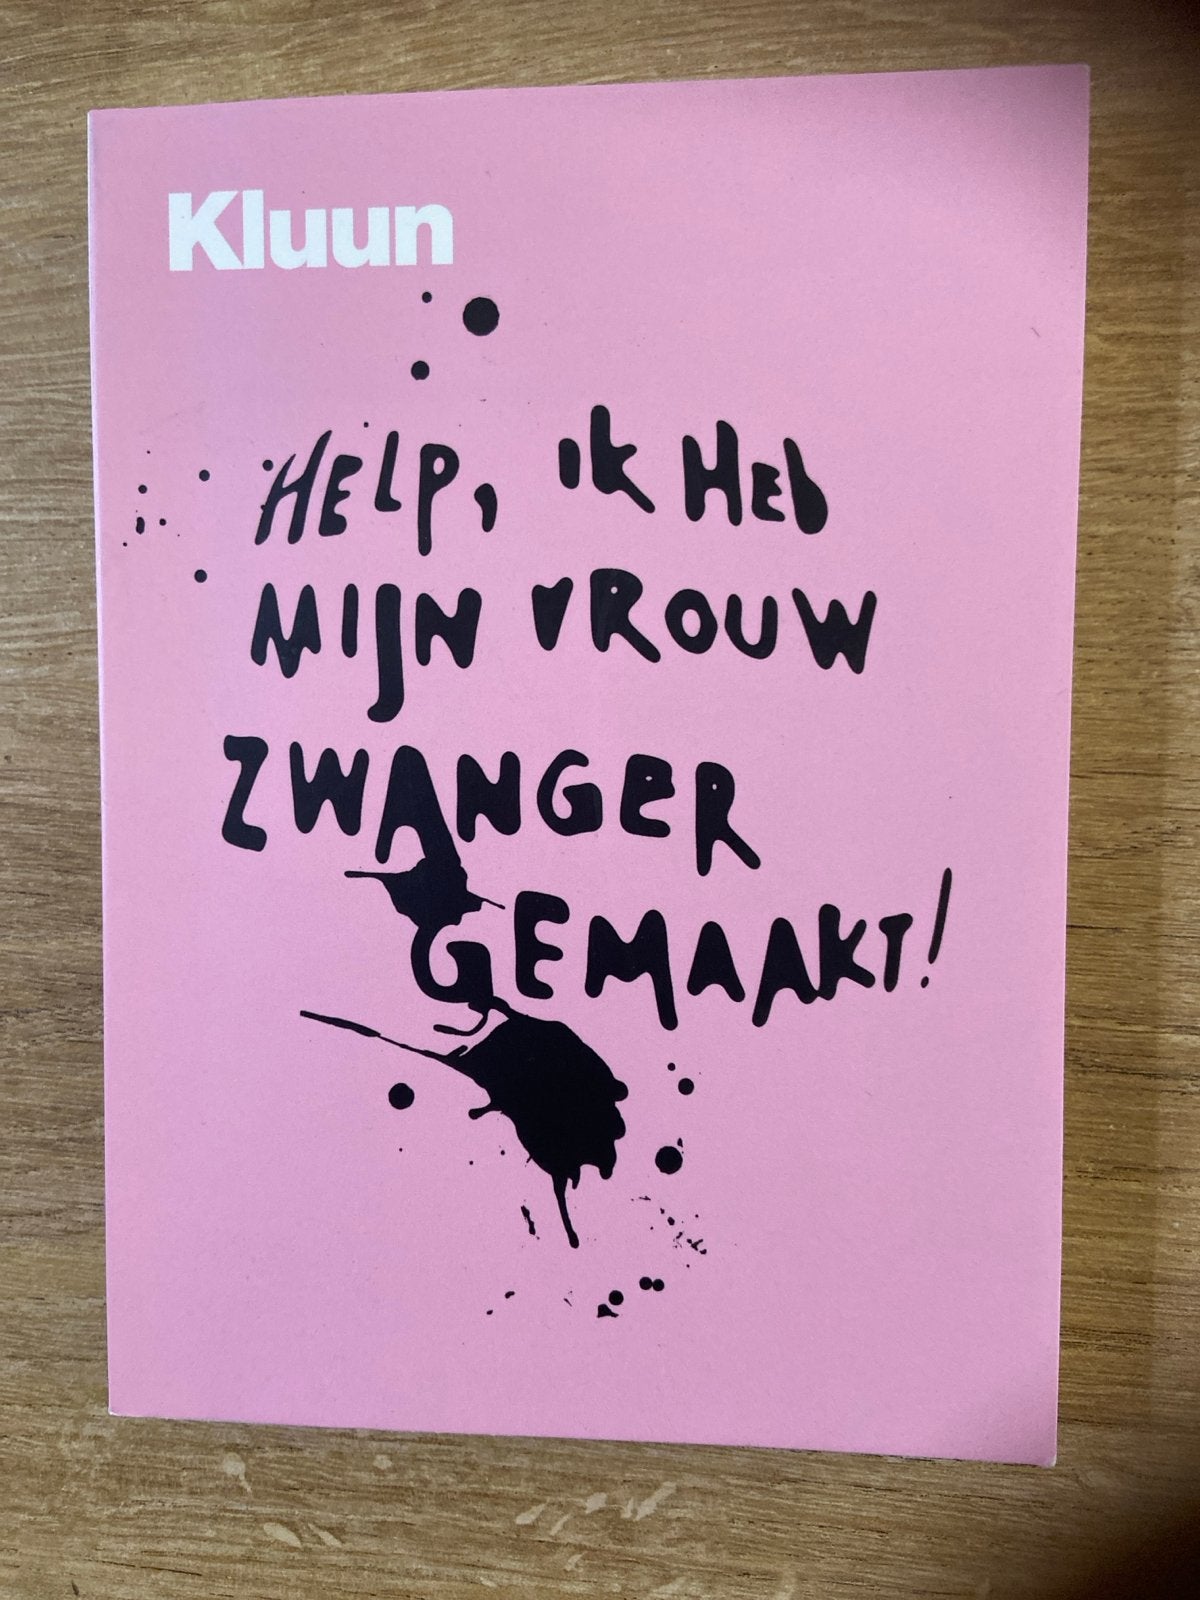 Kluun
HELP, IK HEb
MIJN VROUW
ZWANGER
GEMAAKT!